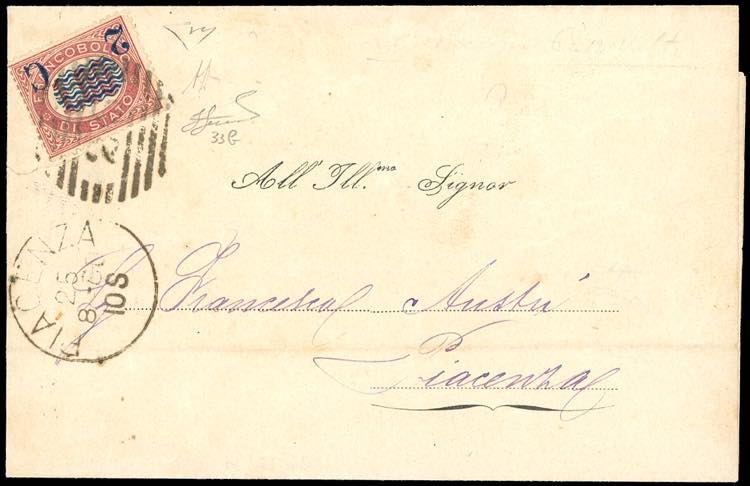 FRANCOBOLLO
2 C
DI STATO
33G
All' Ill.mo Signor
PIACENZA
25
8
10S
Francesca
Piacenza